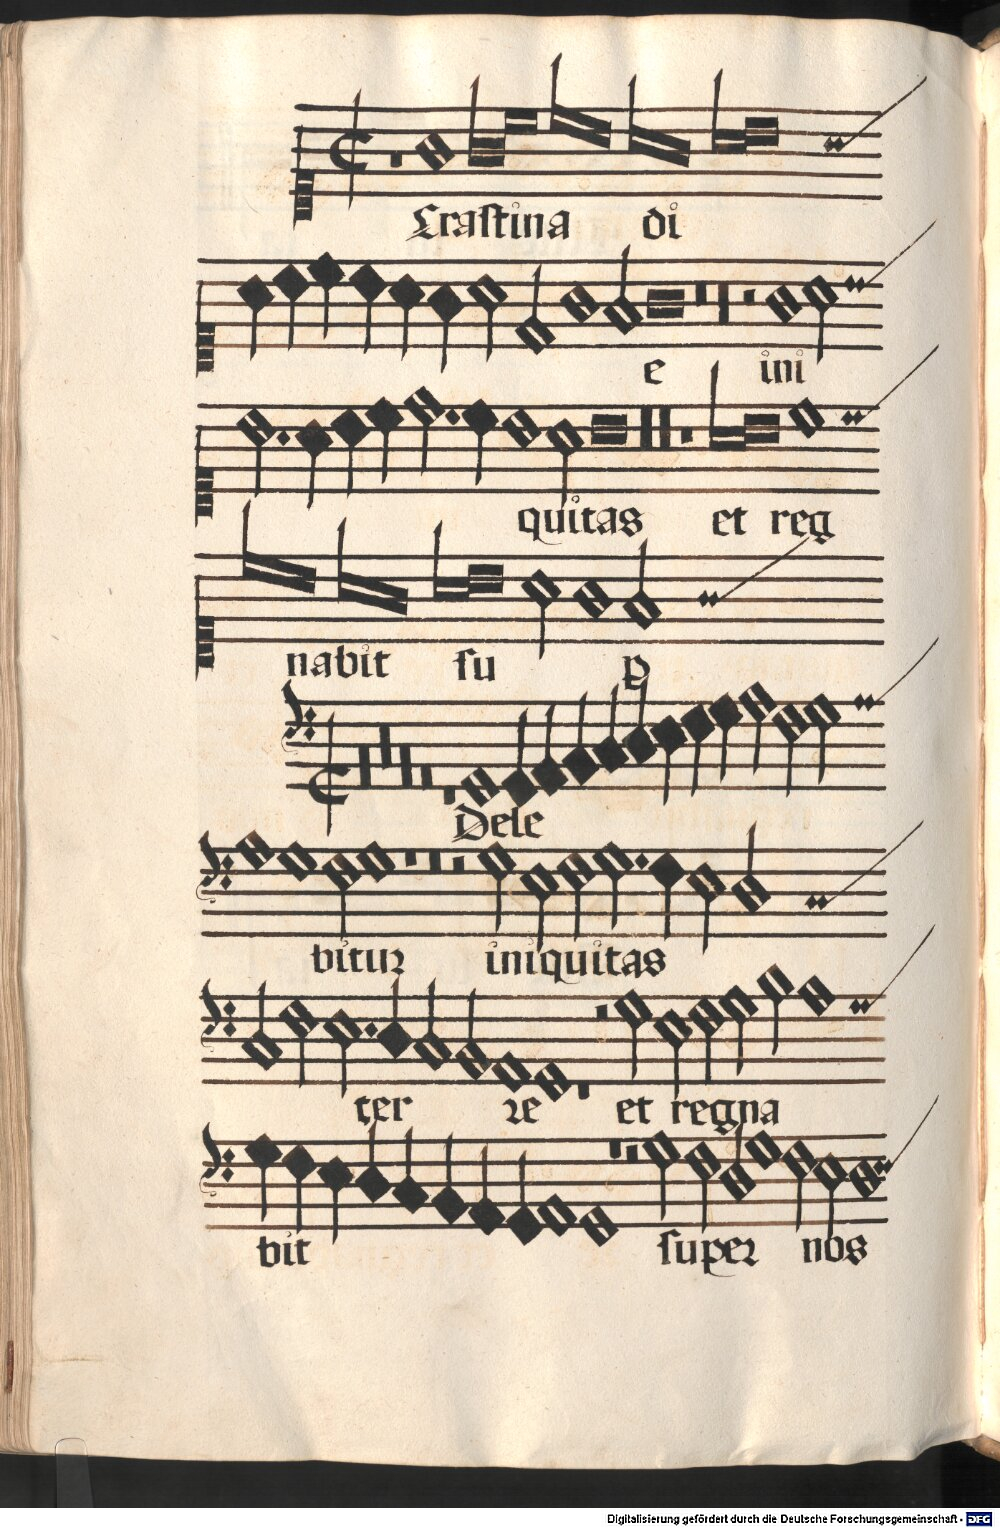 Crastina di
e ini
quitas et reg
nabit su p
Dele
bitur iniquitas
ter re et regna
bit super nos
Digitalisierung gefördert durch die Deutsche Forschungsgemeinschaft - DFG